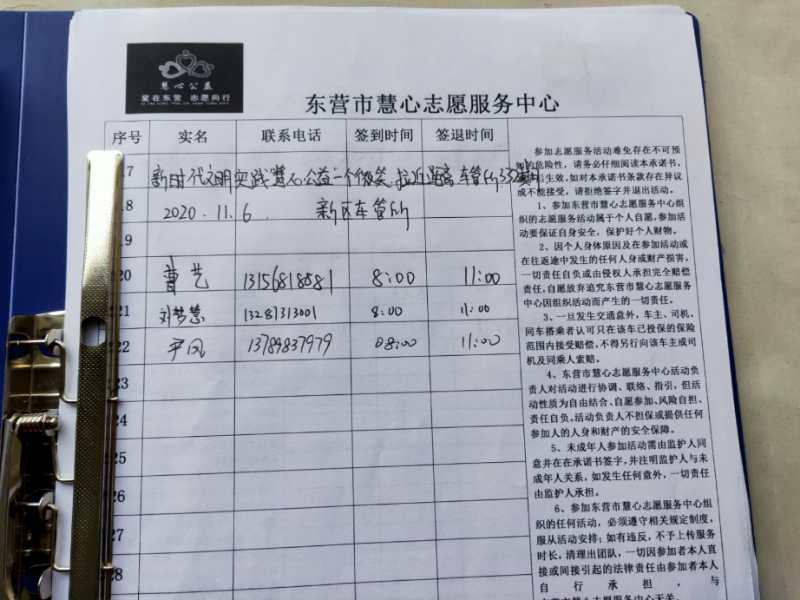 慧心公益
爱在东营 志愿同行
东营市慧心志愿服务中心
序号 实名 联系电话 签到时间 签退时间
17 新时代文明实践慧心公益一个微笑 拉近距离 车管所
18 2020.11.6. 新区车管所
19
20 曹艺 13156818681 8:00 11:00
21 刘梦慧 13287313001 8:00 11:00
22 平凤 13789837979 08:00 11:00
23
24
25
26
27
28
参加志愿服务活动难免存在不可预
知的危险性，请务必仔细阅读本承诺书，
后生效，如对本承诺书条款存在异议
或不能接受，请拒绝签字并退出活动。
1、参加东营市慧心志愿服务中心组
织的志愿服务活动属于个人自愿，参加活
动要保证自身安全，保护好个人财物。
2、因个人身体原因及在参加活动或
在往返途中发生的任何人身或财产损害，
一切责任自负或由侵权人承担完全赔偿
责任，自愿放弃追究东营市慧心志愿服务
中心因组织活动而产生的一切责任。
3、一旦发生交通意外，车主、司机、
同车搭乘者认可只在该车已投保的保险
范围内接受赔偿，不得另行向该车主或司
机及同乘人索赔。
4、东营市慧心志愿服务中心活动负
责人对活动进行协调、联络、指引，但活
动性质为自由结合、自愿参加、风险自担、
责任自负。活动负责人不担保或提供任何
参加人的人身和财产的安全保障。
5、未成年人参加活动需由监护人同
意并在在承诺书签字，并注明监护人与未
成年人关系，如发生任何意外，一切责任
由监护人承担。
6、参加东营市慧心志愿服务中心组
织的任何活动，必须遵守相关规定制度，
服从活动安排；如有违反，不予上传服务
时长，清理出团队，一切因参加者本人直
接或间接引起的法律责任由参加者本人
自行承担，与
东营市慧心志愿服务中心无关。